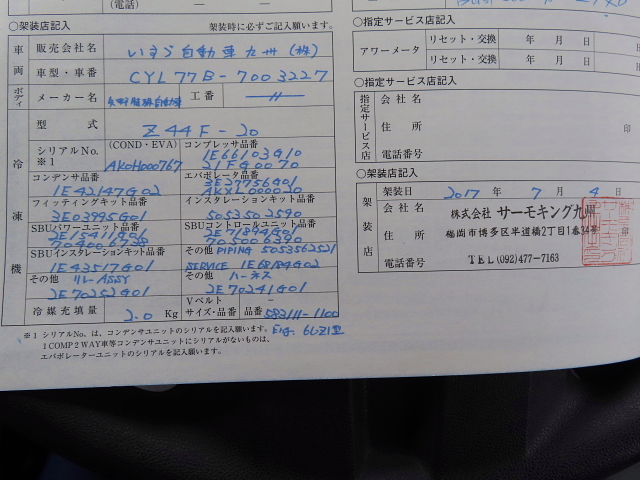 (電話) ー ー
○架装店記入 架装時に必ずご記入願います。
車両 販売会社名 いすゞ自動車九州(株)
車型・車番 CYL77B-7003227
ボディ メーカー名 工番
型式 Z44F-20
冷凍機
シリアルNo. ※1 (COND・EVA) AKOH000767
コンプレッサ品番 1E66103G10
21FG0070
コンデンサ品番 1E42147G02
エバポレータ品番 3E27756G01
AKXL00020
フィッティングキット品番 3E03995G01
インスタレーションキット品番 5053502590
SBUパワーユニット品番 2E15411G01
204006738
SBUコントロールユニット品番 2E71894G01
205006390
SBUインスタレーションキット品番 1E43517G01
その他 PIPING 5053562521
SERVICE 1E68184G02
その他 リレーASSY 2E70252G01
その他 ハーネス 2E70241G01
冷媒充填量 2.0 Kg
Vベルト サイズ・品番 ー
品番 583111-1100
※1 シリアルNo.は、コンデンサユニットのシリアルを記入願います。 Eng. 6UZ1型
1COMP 2WAY車等コンデンサユニットにシリアルがないものは、
エバポレーターユニットのシリアルを記入願います。
○指定サービス店記入
アワーメータ リセット・交換 年 月 日 H
リセット・交換 年 月 日 H
○指定サービス店記入
指定サービス店
会社名
住所 印
電話番号
○架装店記入
架装店
架装日 2017 年 7 月 4 日
会社名 株式会社 サーモキング九州
住所 福岡市博多区半道橋2丁目1番34号 印
電話番号 TEL(092)477-7163